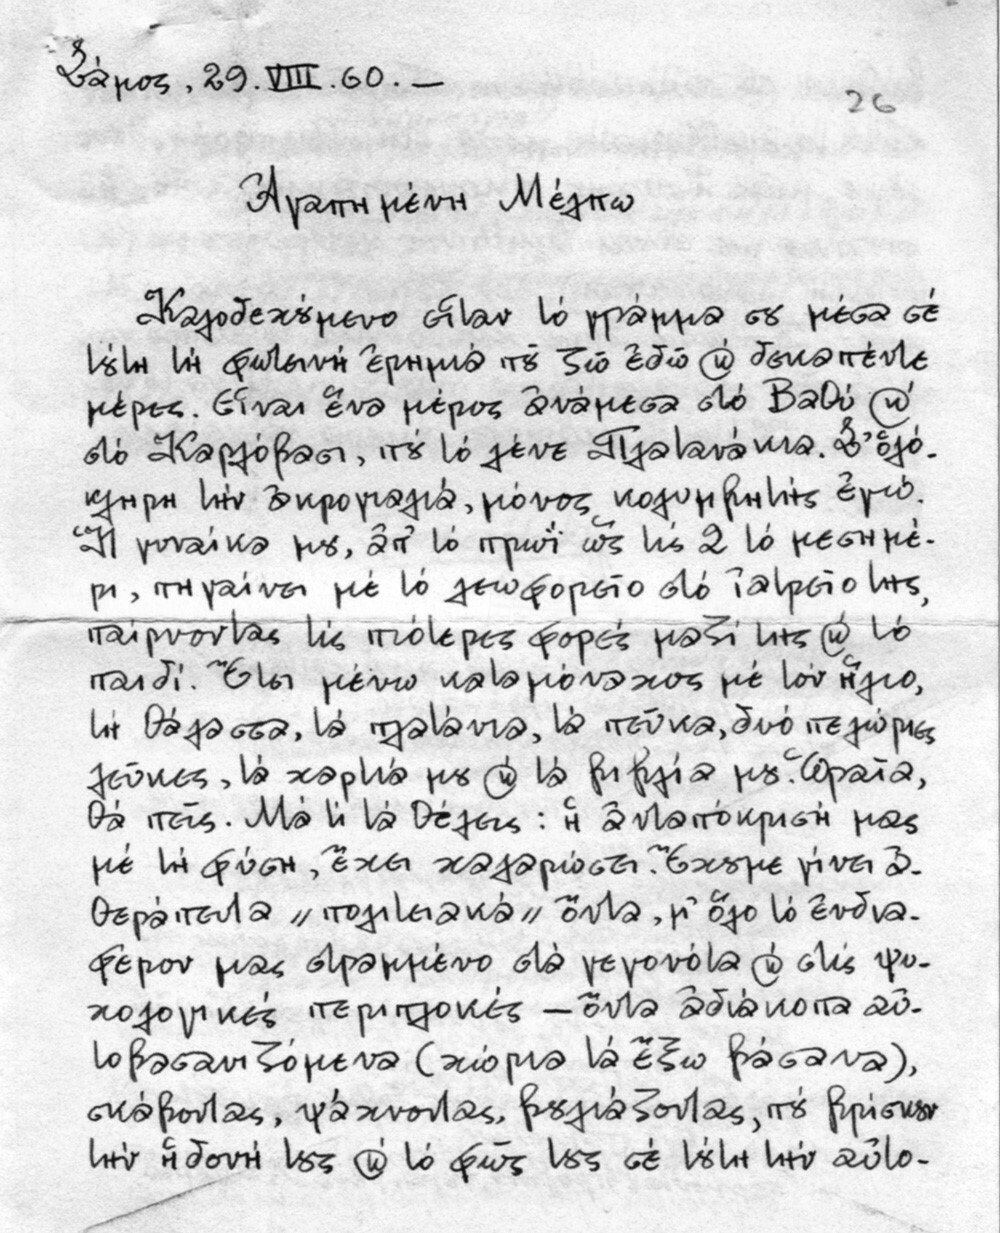 Σάμος, 29.VIII.60.—
26
Ἀγαπημένη Μέλπω
Καλοδεχούμενο εἶταν τό γράμμα σου μέσα σέ
τούτη τή φωτεινή ἐρημιά πού ζῶ ἐδῶ κ' δεκαπέντε
μέρες. Εἶναι ἕνα μέρος ἀνάμεσα στό Βαθύ κ'
στό Καρλόβασι, πού τό λένε Πλατανάκια. Σ' ὅλό-
κληρη τήν ἀκρογιαλιά, μόνος κολυμβητής ἐγώ.
Ἡ γυναίκα μου, ἀπ' τό πρωΐ ὥς τίς 2 τό μεσημέ-
ρι, πηγαίνει μέ τό λεωφορεῖο στό ἰατρεῖο της,
παίρνοντας τίς πιότερες φορές μαζί της κ' τό
παιδί. Ἔτσι μένω καταμόναχος μέ τόν ἥλιο,
τή θάλασσα, τά πλατάνια, τά πεῦκα, δυό πελώριες
λεῦκες, τά χαρτιά μου κ' τά βιβλία μου. Ὡραῖα,
θά πεῖς. Μά τί τά θέλεις: ἡ ἀνταπόκρισή μας
μέ τή φύση, ἔχει χαλαρώσει. Ἔχουμε γίνει ἀ-
θεράπευτα „πολιτειακά„ ὄντα, μ' ὅλο τό ἐνδια-
φέρον μας στραμμένο στά γεγονότα κ' στίς ψυ-
χολογικές περιπλοκές — ὄντα ἀδιάκοπα αὐ-
τοβασανιζόμενα (χώρια τά ἔξω βάσανα),
σκάβοντας, ψάχνοντας, βουλιάζοντας, πού βρίσκουν
τήν ἡδονή τους κ' τό φῶς τους σέ τούτη τήν αὐτο-